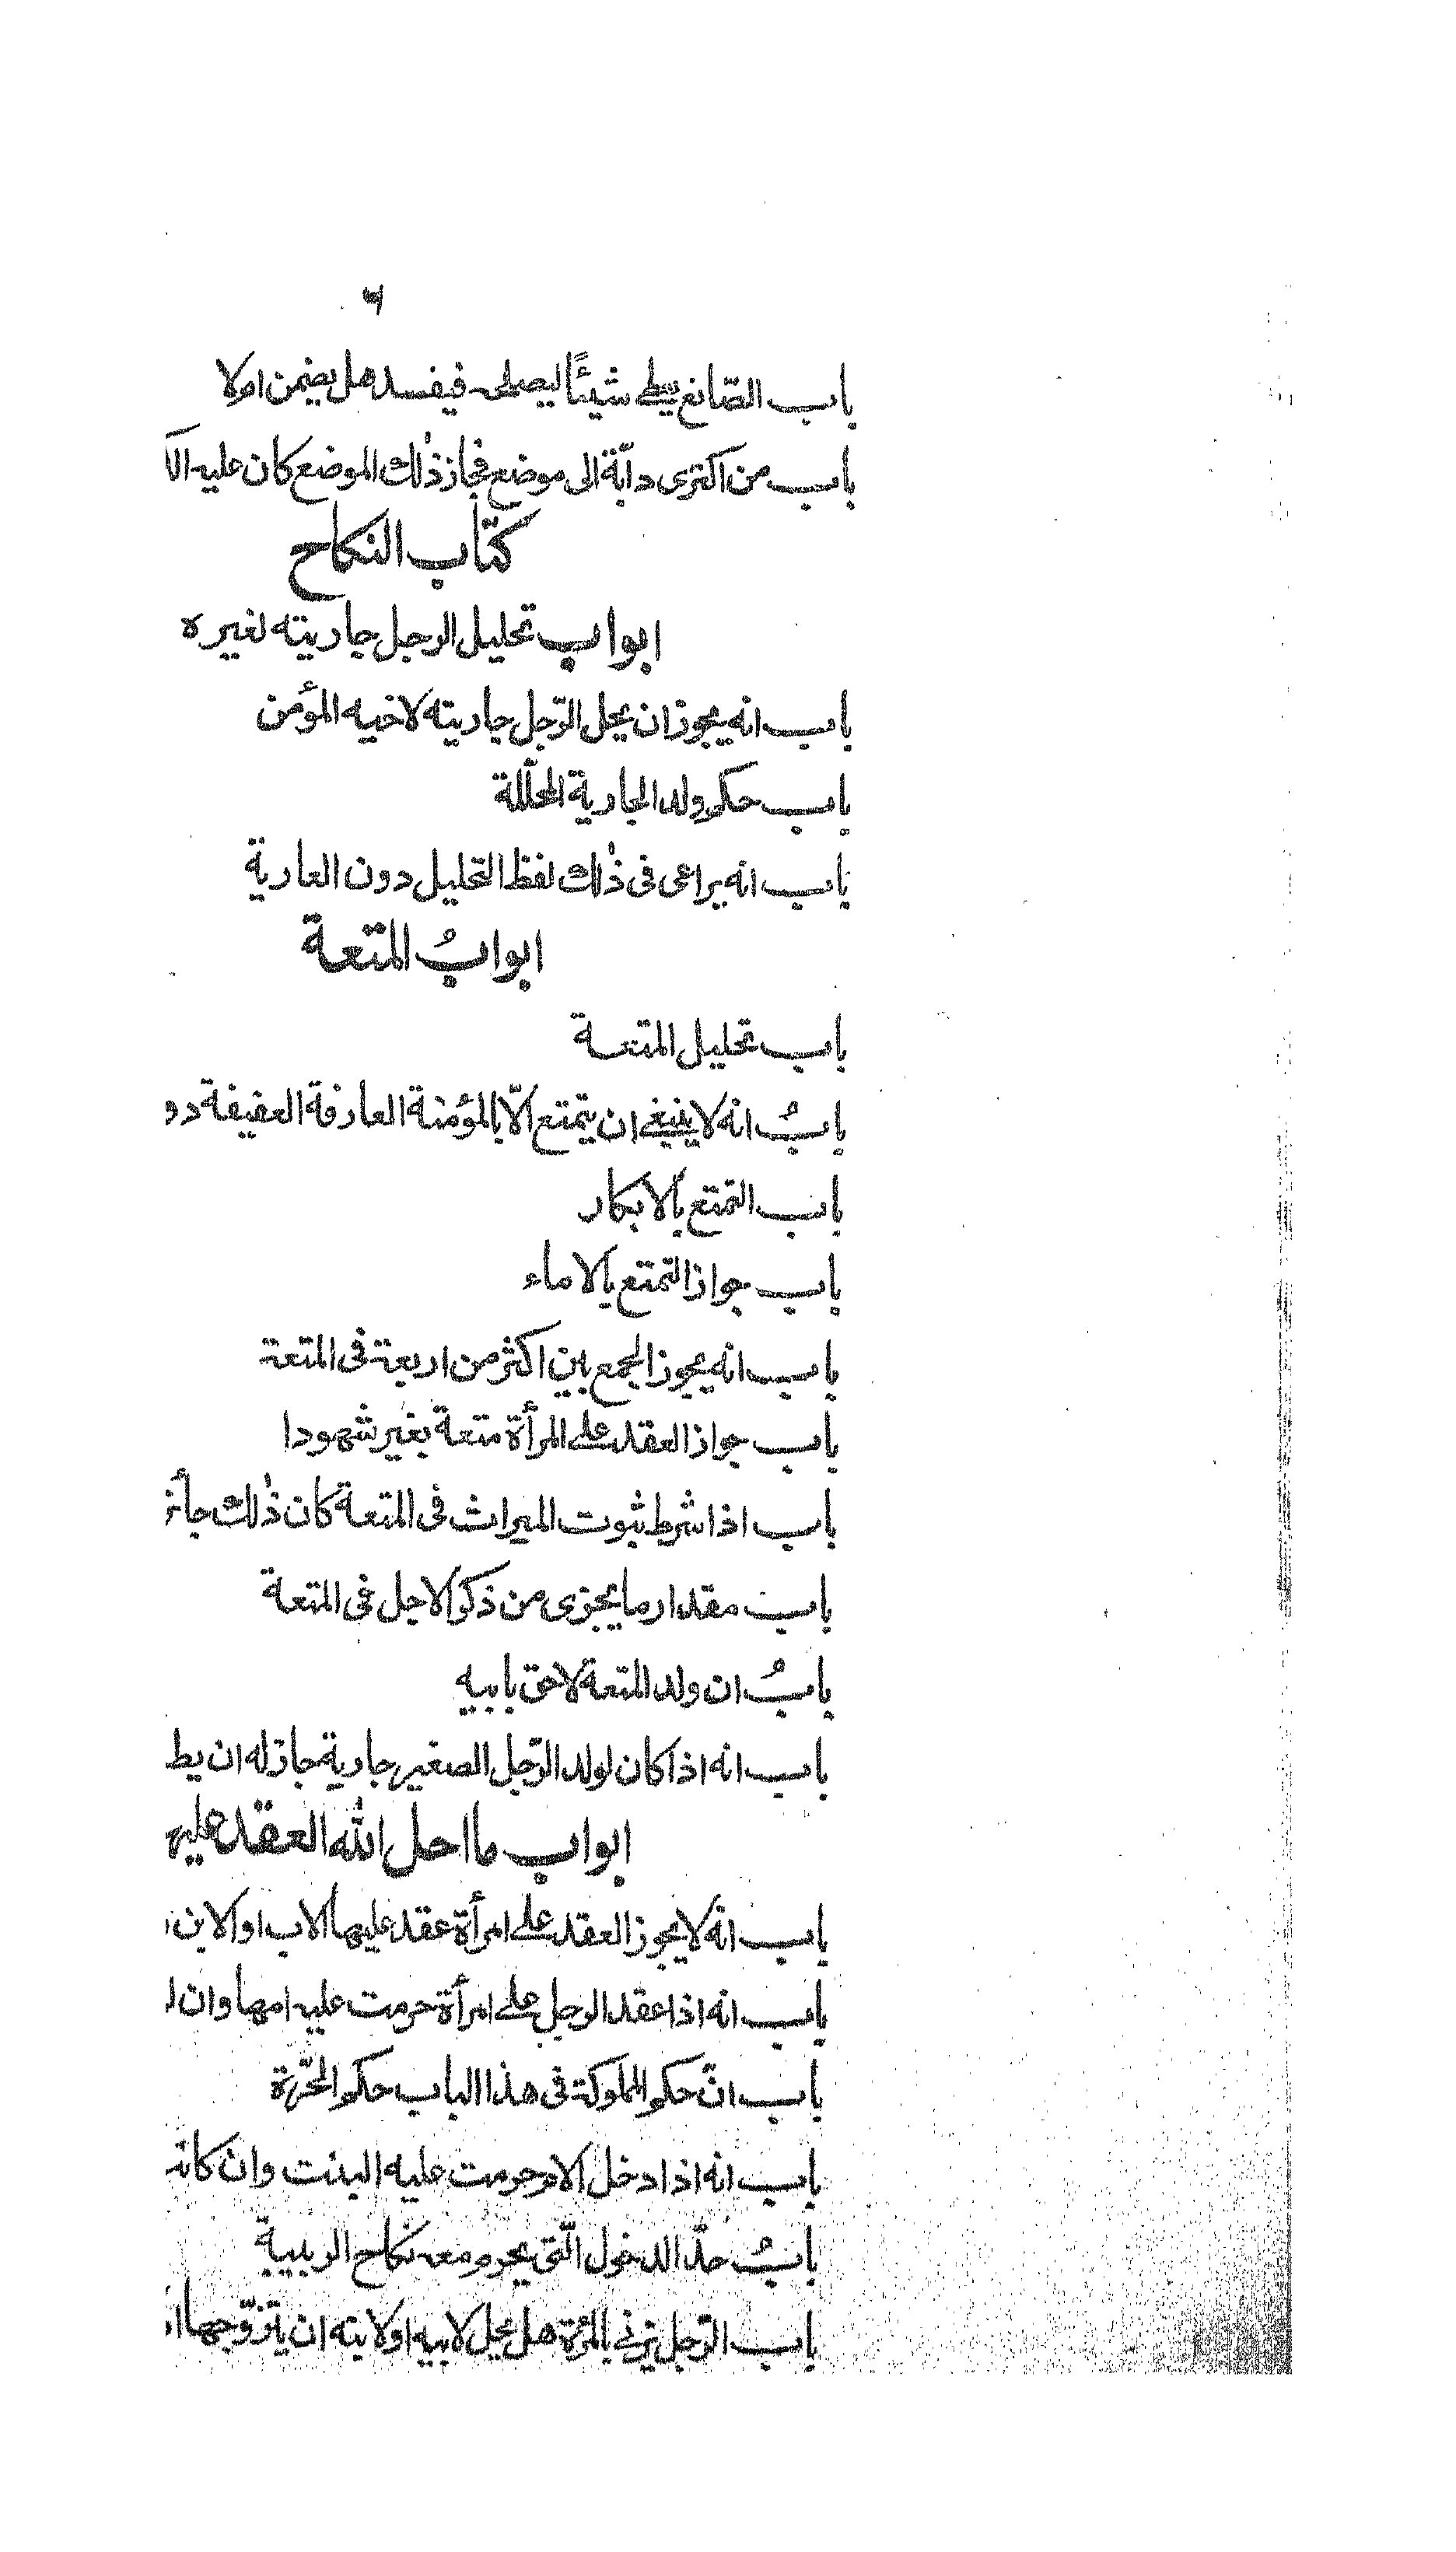 ٦
باب الصّانع يعطى شيئًا ليصلحه فيفسد هل يضمن ام لا
باب من اكترى دابّة الى موضع فجاز ذٰلك الموضع كان عليه
كتاب النكاح
ابواب تحليل الرجل جاريته لغيره
باب انه يجوز ان يحل الرّجل جاريته لاخيه المؤمن
باب حكم ولد الجارية المحلّلة
باب انه يراعى فى ذٰلك لفظ التحليل دون العارية
ابوابُ المتعة
باب تحليل المتعة
بابُ انه لا ينبغى ان يتمتع الّا بالمؤمنة العارفة العفيفة دو
باب التمتع بالابكار
باب جواز التمتع بالاماء
باب انه يجوز الجمع بين اكثر من اربعة فى المتعة
باب جواز العقد على المرأة متعة بغير شهودا
باب اذا شرط ثبوت الميراث فى المتعة كان ذٰلك جائز
باب مقدار ما يجزى من ذكر الاجل فى المتعة
بابُ ان ولد المتعة لاحق بابيه
باب انه اذا كان لولد الرّجل الصغير جارية جاز له ان يط
ابواب ما احل الله العقد عليه
باب انه لا يجوز العقد على امرأة عقد عليها الاب او الابن
باب انه اذا عقد الرجل على امرأة حرمت عليه امها وان ل
باب انّ حكم المملوكة فى هذا الباب حكم الحرّة
باب انه اذا دخل الام حرمت عليه البنت وان كانت
بابُ حدّ الدخول الّتى يحرم معه نكاح الربيبة
باب الرّجل يزنى بالمرئة هل يحل لابيه او لابنه ان يتزوّجها